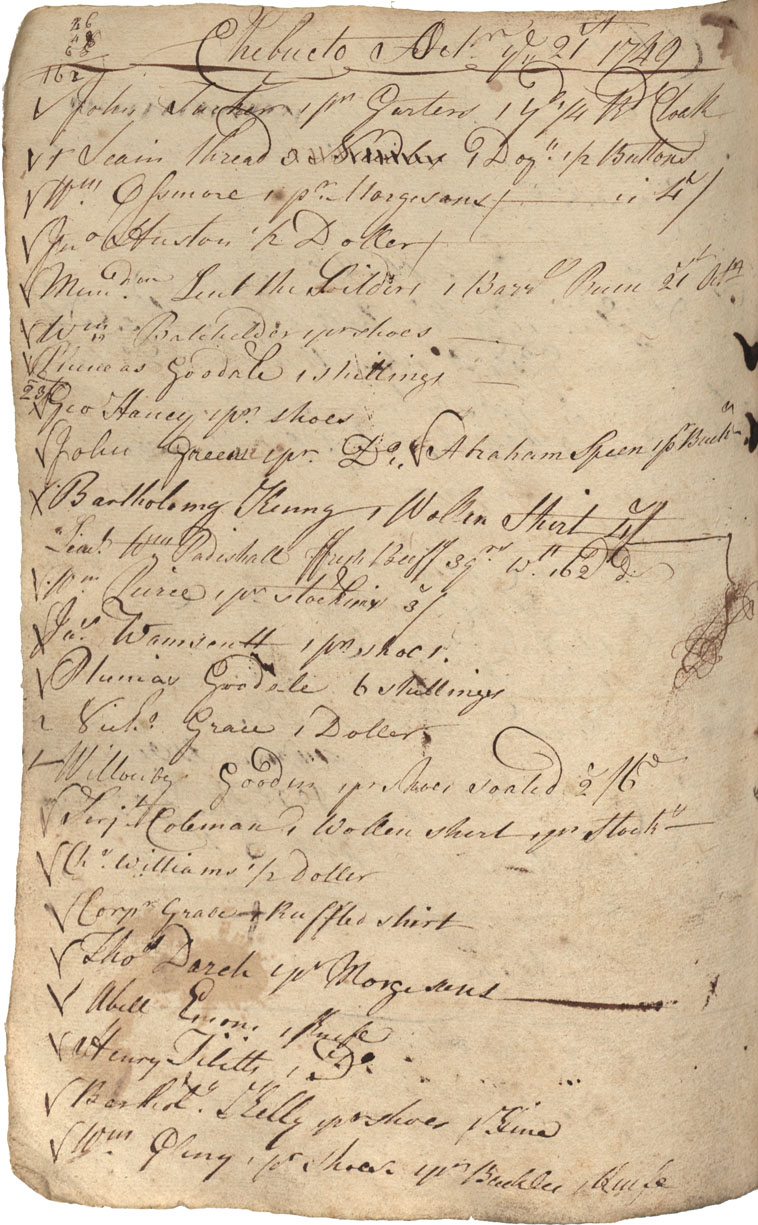 26
48
68
162
Chebucto Octr ye 21st 1749
John Tucker 1 pr Garters 1 yd 1/4 Rd Cloak
1 Scain thread 2 Doz 1/2 Buttons
Wm Ossmore 1 pr Morgesons 4/
Jno Huston 1/2 Doller
Memdm Lent the Soilders 1 Barrll Rum 21st Octr
Wm Batchelder 1 pr shoes
Phineas Goodale 1 shillings
23
Geo Haney 1 pr shoes
John Green 1 pr Do. Abraham Speen 1 pr Buck
Bartholomy Kenny 1 Wollen Shirt 4/
Wm Padishall ffresh Beeff 3 qrs Wt 162
Wm Peirce 1 pr stockins 3/
Jas. Wamsentt 1 pr shoes
Phinias Goodale 6 shillings
Nichs Grace 1 Doller
Willouby Gooden 1 pr shoes soaled 2/6d
Serjt Coleman 1 Wollen shirt 1 pr Stocks
Chs Williams 1/2 Doller
Corpr Grace 1 Ruffled shirt
Thos Darck 1 pr Morgesons
Abell Emons 1 Knife
Henry Tibitts 1 Do
Bartholo. Kelly 1 pr shoes
Wm 1 pr Shoes 1 pr Buckles 1 Knife